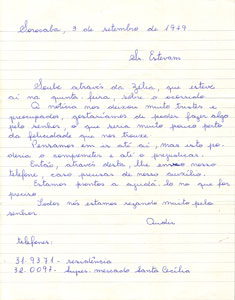 Sorocaba, 3 de setembro de 1979
Sr Estevam
Soube através da Zélia, que esteve
aí na quinta-feira, sobre o ocorrido
A notícia nos deixou muito tristes e
preocupados, gostaríamos de poder fazer algo
pelo senhor, o que seria muito pouco perto
da felicidade que nos trouxe.
Pensamos em ir até aí, mas isto po-
deria o comprometer e até o prejudicar.
Então, através desta, lhe envio nosso
telefone, caso precisar de nosso auxílio.
Estamos prontos a ajudá-lo no que for
preciso
Todos nós estamos rezando muito pelo
senhor
telefones:
31.9371 - residência
32.0097 - Super mercado Santa Cecília